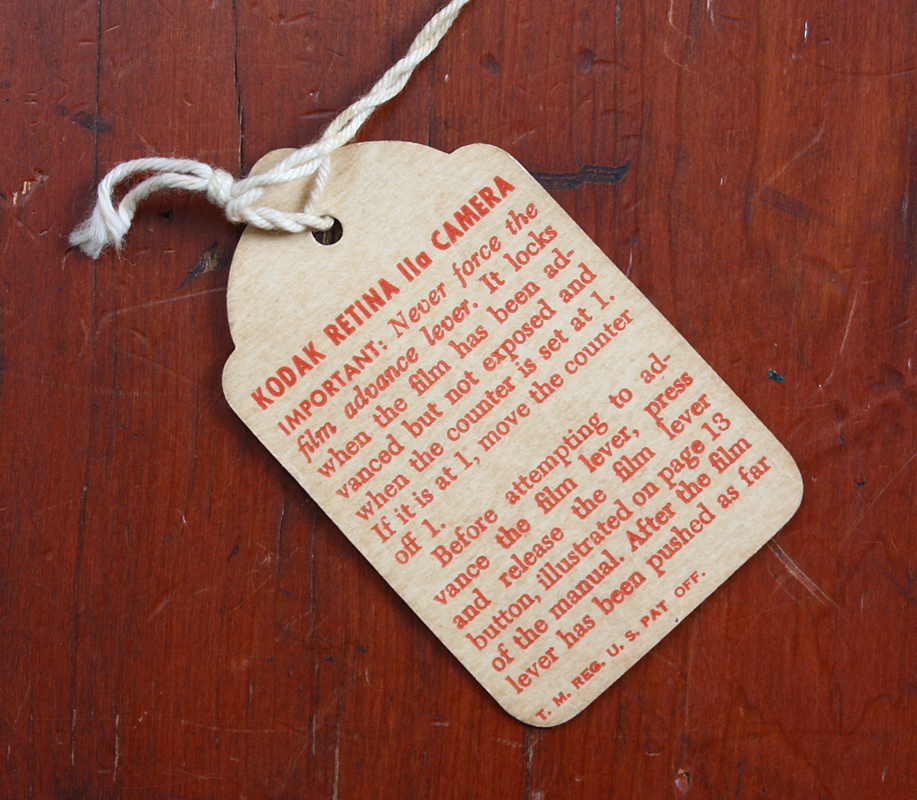 KODAK RETINA IIa CAMERA
IMPORTANT: Never force the
film advance lever. It locks
when the film has been ad-
vanced but not exposed and
when the counter is set at 1.
If it is at 1, move the counter
off 1.
Before attempting to ad-
vance the film lever, press
and release the film lever
button, illustrated on page 13
of the manual. After the film
lever has been pushed as far
T. M. REG. U. S. PAT OFF.